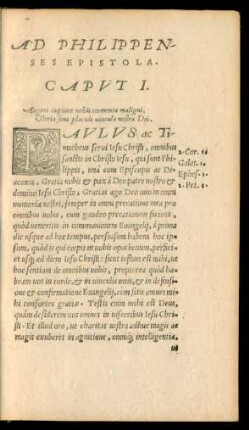 AD PHILIPPEN-
SES EPISTOLA.
CAPVT I.
PAVLVS ac Ti-
motheus serui Iesu Christi, omnibus
sanctis in Christo Iesu, qui sunt Phi-
lippis, unà cum Episcopis ac Di-
aconis, Gratia uobis & pax à Deo patre nostro &
domino Iesu Christo. Gratias ago Deo meo in omni
memoria uestri, semper in omni precatione mea pro
omnibus uobis, cum gaudio precationem faciens,
quòd ueneritis in communionem Euangelij, à primo
die usque ad hoc tempus, persuasum habens hoc ip-
sum, quòd is qui coepit in uobis opus bonum, perfici-
et usq; ad diem Iesu Christi: sicut iustum est mihi, ut
hoc sentiam de omnibus uobis, propterea quòd ha-
beam uos in corde, & in uinculis meis, & in defensio-
ne & confirmatione Euangelij, cum sitis omnes mi-
hi consortes gratiæ. Testis enim mihi est Deus,
quàm desiderem uos omnes in uisceribus Iesu Chri-
sti. Et illud oro, ut charitas uestra adhuc magis ac
magis exuberet in agnitione, omniq; intelligentia,
ut
2.Cor. 1
Galat. 1
Ephes. 1
1.Pet. 1